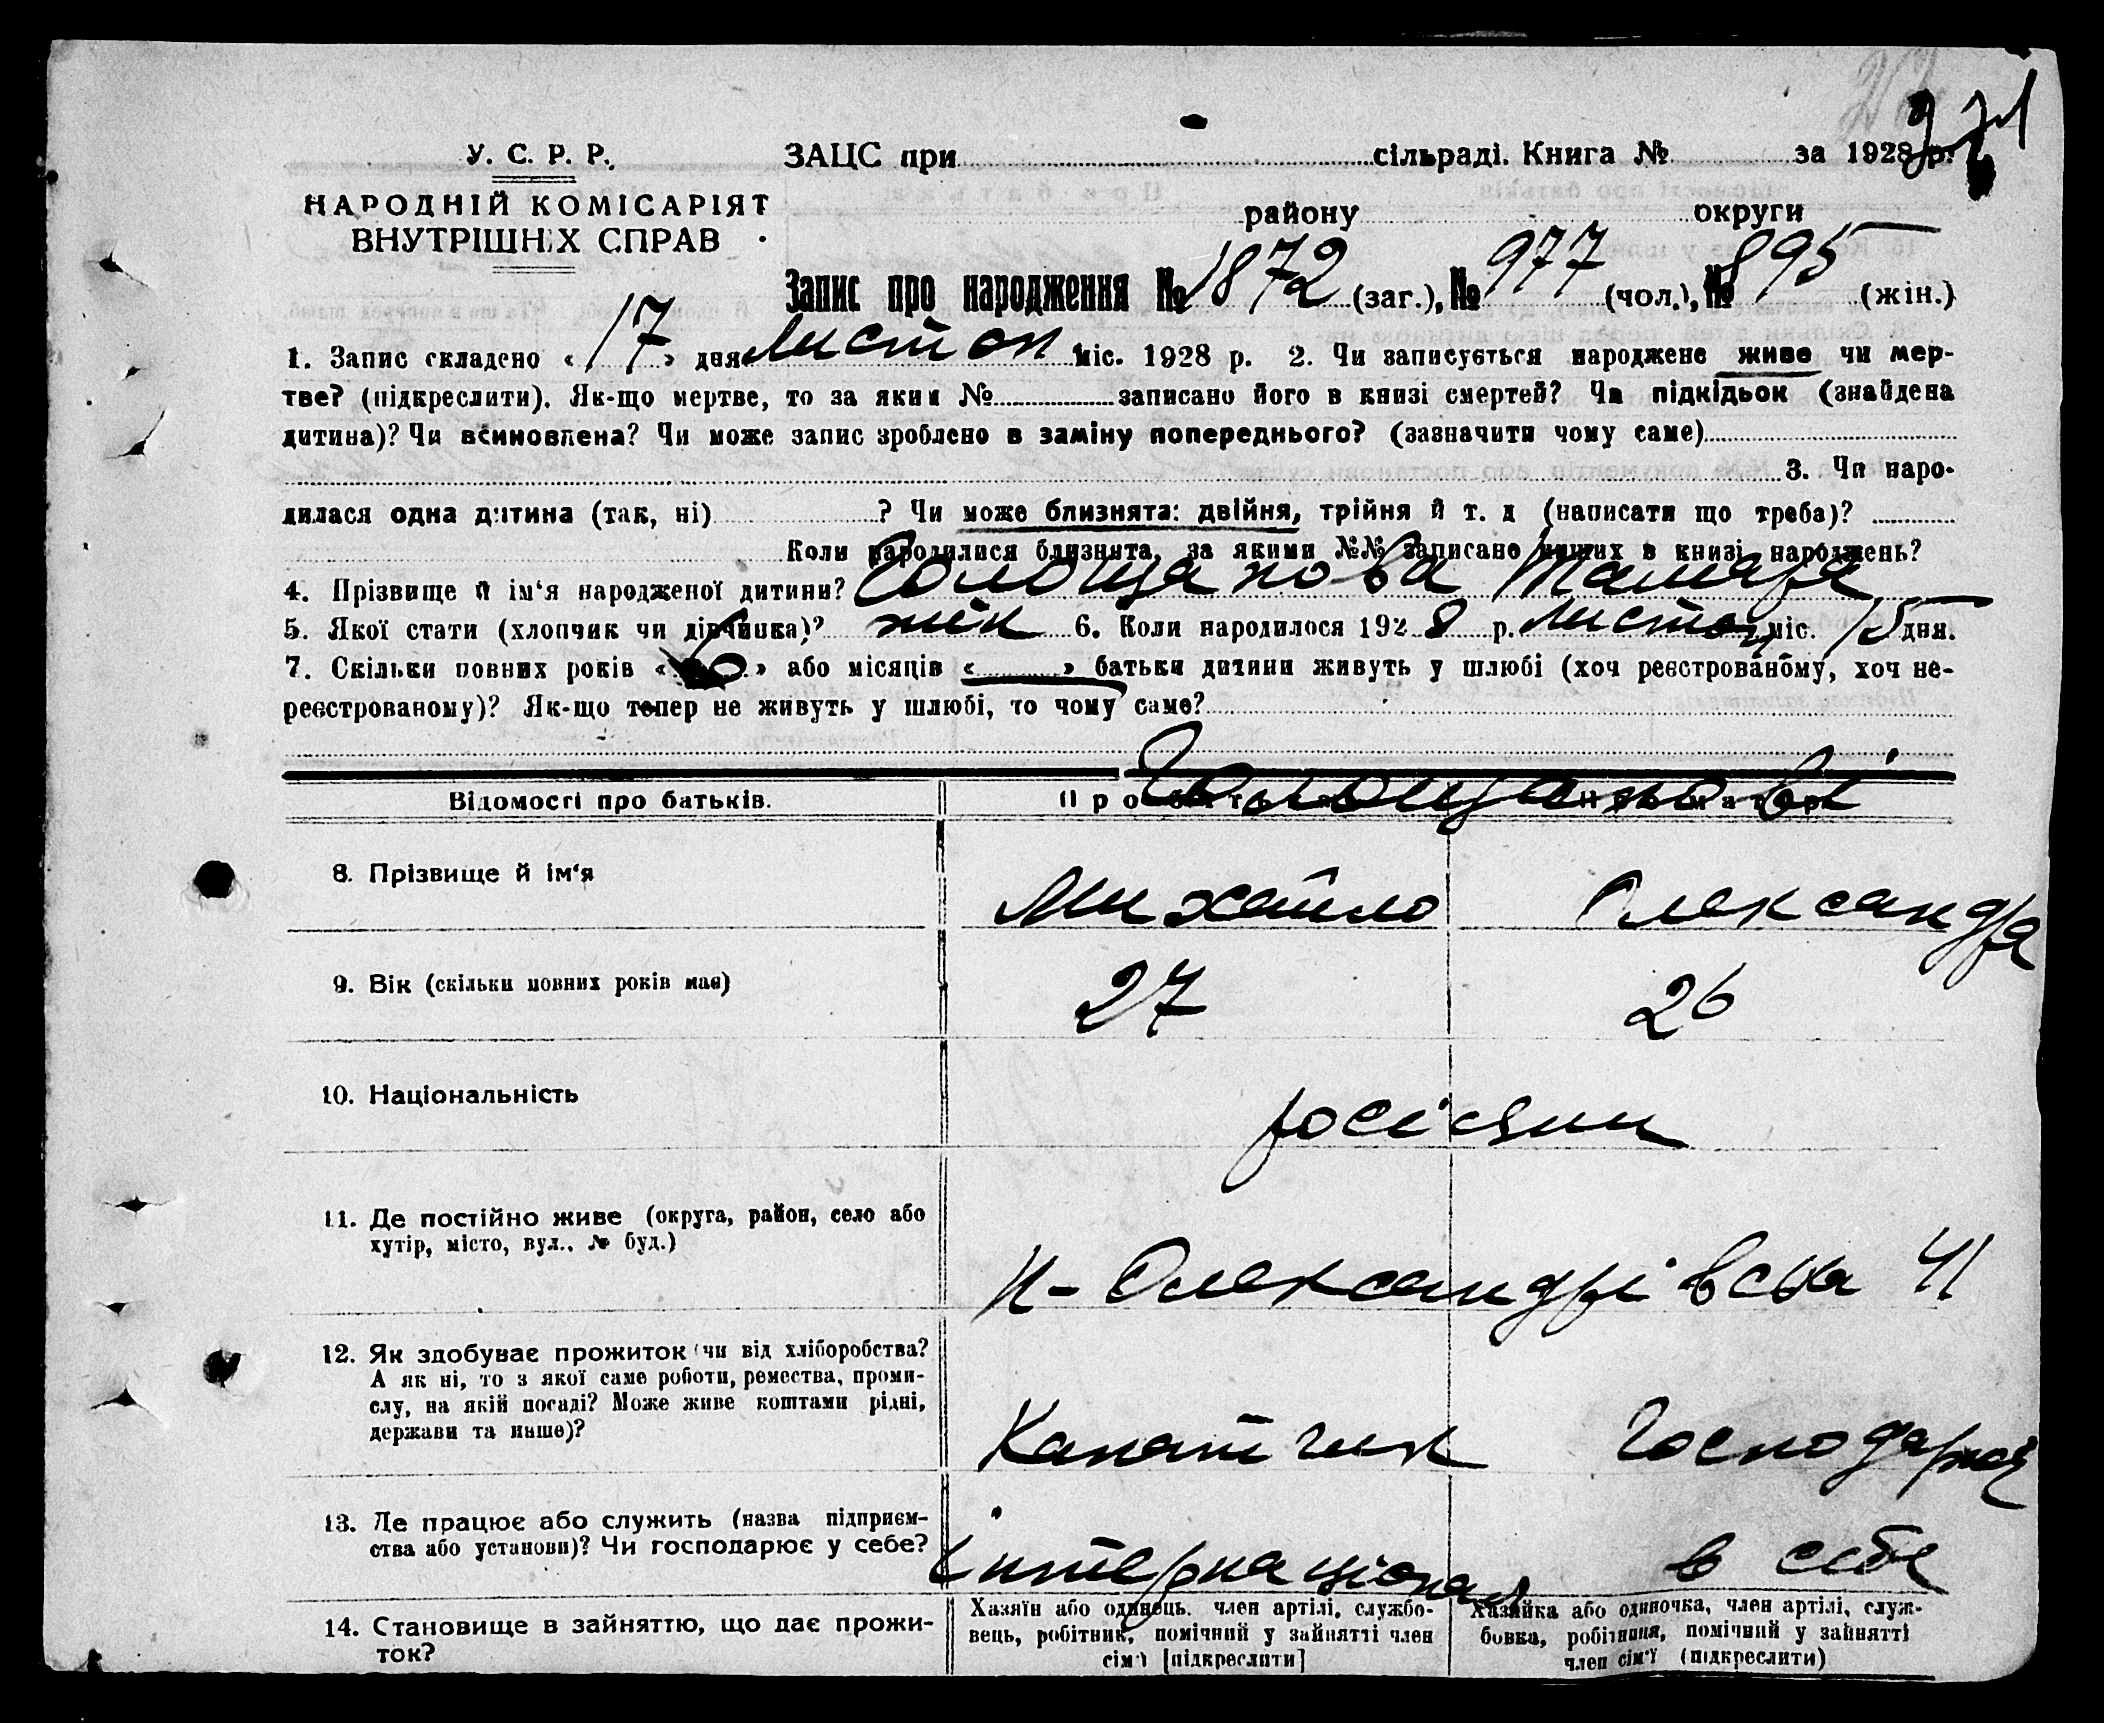 271
У. С. Р. Р.
НАРОДНІЙ КОМІСАРІЯТ
ВНУТРІШНІХ СПРАВ
ЗАЦС при сільраді. Книга № за 1928 р.
району округи
Запис про народження № 1872 (заг.), № 977 (чол.), № 895 (жін.)
1. Запис складено « 17 » дня листоп міс. 1928 р. 2. Чи записується народжене живе чи мер-
тве? (підкреслити). Як-що мертве, то за яким № записано його в книзі смертей? Чи підкідьок (знайдена
дитина)? Чи всиновлена? Чи може запис зроблено в заміну попереднього? (зазначити чому саме)
3. Чи наро-
дилася одна дитина (так, ні) ? Чи може близнята: двійня, трійня й т. д (написати що треба)?
Коли народилися близнята, за якими №№ записано инших в книзі народжень?
4. Прізвище й ім'я народженої дитини? Голощапова Тамара
5. Якої стати (хлопчик чи дівчинка)? жін 6. Коли народилося 192 8 р. листоп міс. 15 дня.
7. Скільки повних років « 6 » або місяців « » батьки дитини живуть у шлюбі (хоч реєстрованому, хоч не-
реєстрованому)? Як-що тепер не живуть у шлюбі, то чому саме?
Відомості про батьків. Про батька Про матір
Голощапові
8. Прізвище й ім'я Михайло Олександра
9. Вік (скільки повних років має) 27 26
10. Національність росіяни
11. Де постійно живе (округа, район, село або
хутір, місто, вул., № буд.) Н-Олександрівська 41
12. Як здобуває прожиток (чи від хліборобства?
А як ні, то з якої саме роботи, ремества, проми-
слу, на якій посаді? Може живе коштами рідні,
держави та инше)? Канатчик Господарює
13. Де працює або служить (назва підприєм-
ства або установи)? Чи господарює у себе? Інтернаціонал в себе
14. Становище в зайняттю, що дає прожи-
ток?
Хазяїн або одинець. член артілі, службо-
вець, робітник, помічний у зайнятті член
сім'ї [підкреслити]
Хазяйка або одиночка, член артілі, служ-
бовка, робітниця, помічний у зайнятті
член сім'ї (підкреслити)